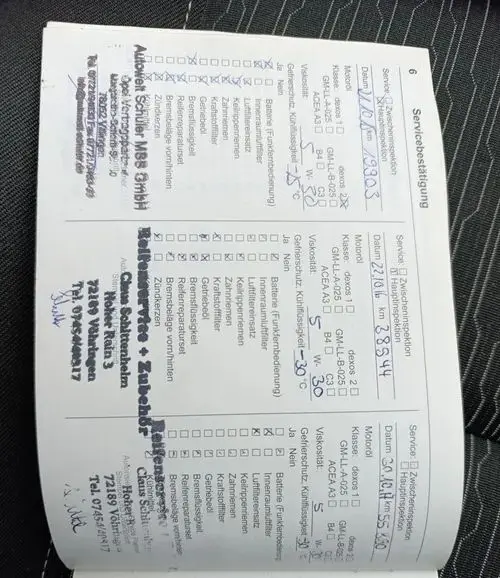 6
Servicebestätigung
Service: Zwischeninspektion
Hauptinspektion
Datum km 19903
Motoröl
Klasse: dexos 1 dexos 2
GM-LL-A-025 GM-LL-B-025
ACEA A3 B4 C3
Viskosität: 5 W- 30
Gefrierschutz, Kühlflüssigkeit -25 °C
Ja Nein
Batterie (Funkfernbedienung)
Innenraumluftfilter
Luftfiltereinsatz
Keilrippenriemen
Zahnriemen
Kraftstofffilter
Getriebeöl
Bremsflüssigkeit
Reifenreparaturset
Bremsbeläge vorn/hinten
Zündkerzen
Autowelt Schuler MBS GmbH
Opel Vertragspartner
Villingen
Service: Zwischeninspektion
Hauptinspektion
Datum 22.10.16 km 38944
Motoröl
Klasse: dexos 1 dexos 2
GM-LL-A-025 GM-LL-B-025
ACEA A3 B4 C3
Viskosität: 5 W- 30
Gefrierschutz, Kühlflüssigkeit -30 °C
Ja Nein
Batterie (Funkfernbedienung)
Innenraumluftfilter
Luftfiltereinsatz
Keilrippenriemen
Zahnriemen
Kraftstofffilter
Getriebeöl
Bremsflüssigkeit
Reifenreparaturset
Bremsbeläge vorn/hinten
Zündkerzen
Reifenservice + Zubehör
Claus Schlittenhelm
Hoher Rain 3
72189 Vöhringen
Service: Zwischeninspektion
Hauptinspektion
Datum 30.10.17 km
Motoröl
Klasse: dexos 1 dexos 2
GM-LL-A-025 GM-LL-B-025
ACEA A3 B4
Viskosität: 5 W-
Gefrierschutz, Kühlflüssigkeit
Ja Nein
Batterie (Funkfernbedienung
Innenraumluftfilter
Luftfiltereinsatz
Keilrippenriemen
Zahnriemen
Kraftstofffilter
Getriebeöl
Bremsflüssigkeit
Reifenreparaturset
Bremsbeläge vorn/hinten
Claus
Hoher
72189